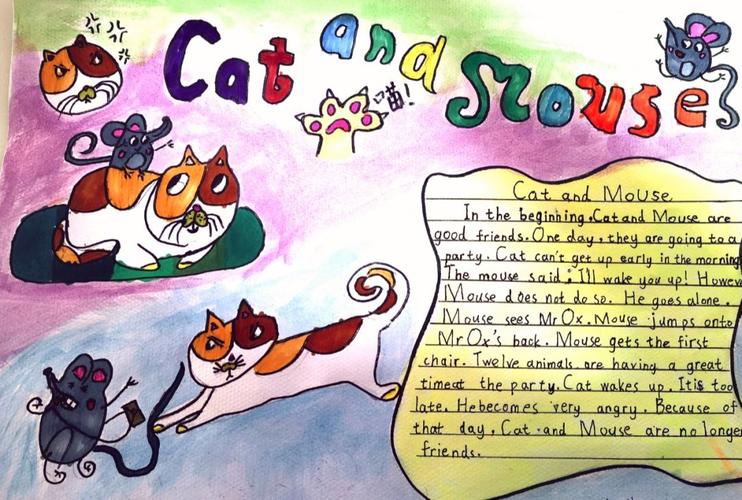 Cat and Mouse
喵!
Cat and Mouse
In the beginning, Cat and Mouse are
good friends. One day, they are going to a
party. Cat can't get up early in the morning
The mouse said: I'll wake you up! Howev
Mouse does not do so. He goes alone.
Mouse sees Mr Ox. Mouse jumps onto
Mr Ox's back. Mouse gets the first
chair. Twelve animals are having a great
timeat the party. Cat wakes up. It is too
late. He becomes very angry. Because of
that day, Cat and Mouse are no longe
friends.